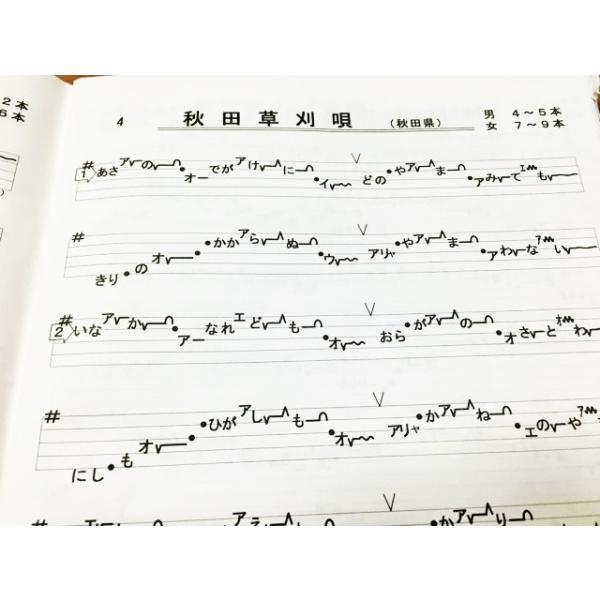 2本
6本
4 秋田草刈唄 (秋田県) 男 4～5本
女 7～9本
# 1 あさアの オーでがアけに イ どの やアま アみてエも
# きり の オ かかアらぬ ウ アリャ やアま アわなアい
# 2 いなアか アーなれエども オ おら がアの オさとオわ
# にし も オ ひがアしも オ アリャ かアね エのアや